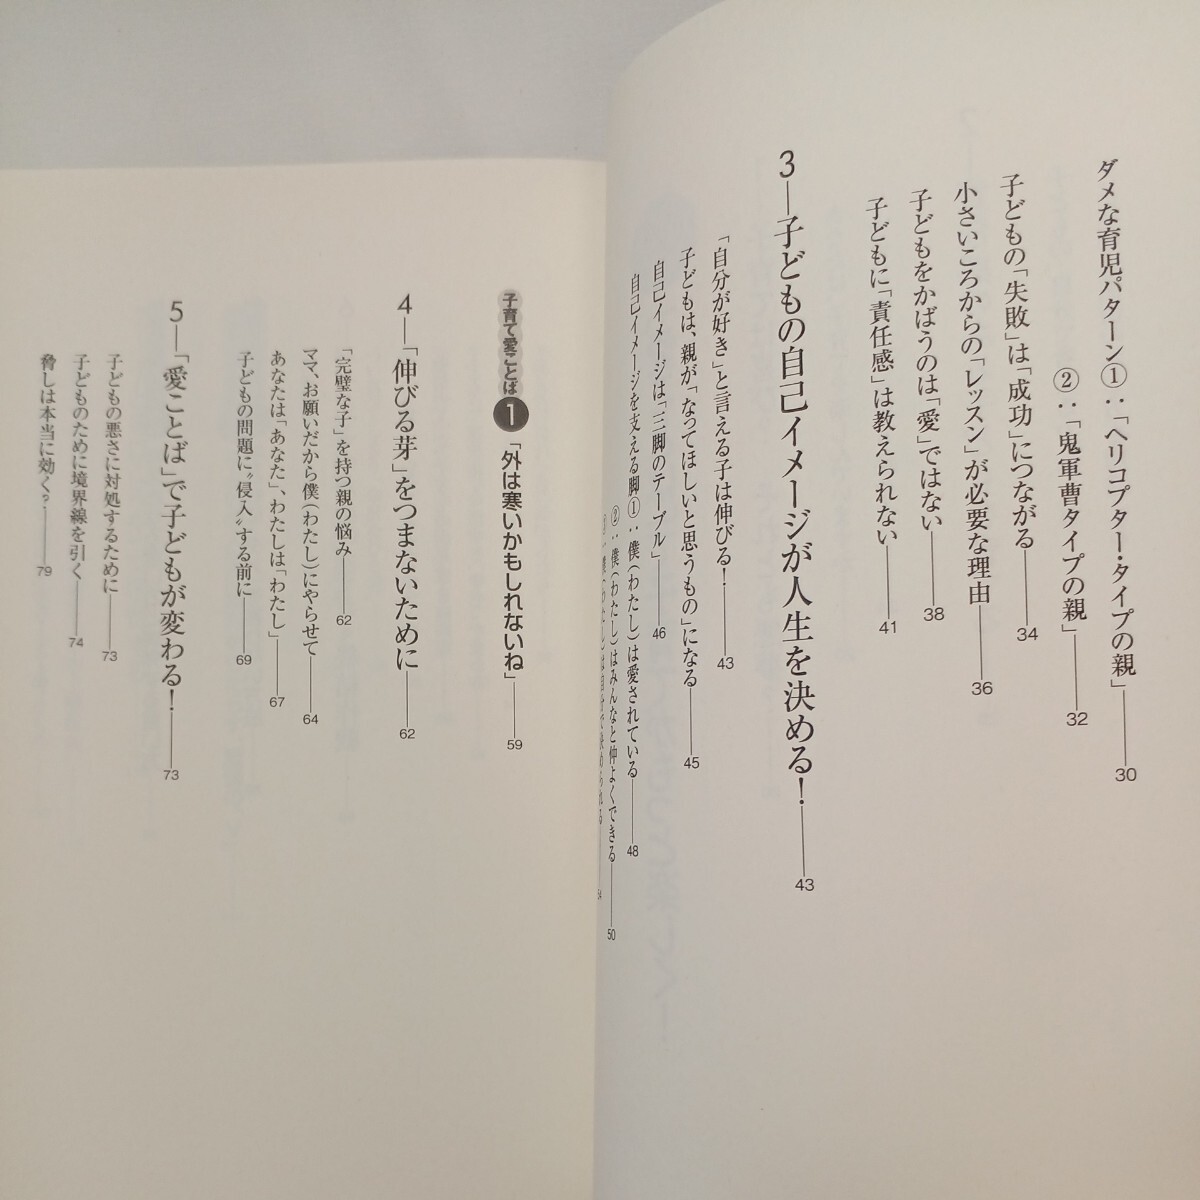 ダメな育児パターン①:「ヘリコプター・タイプの親」——30
②:「鬼軍曹タイプの親」——32
子どもの「失敗」は「成功」につながる——34
小さいころからの「レッスン」が必要な理由——36
子どもをかばうのは「愛」ではない——38
子どもに「責任感」は教えられない——41
3—子どもの自己イメージが人生を決める!——43
「自分が好き」と言える子は伸びる!——43
子どもは、親が「なってほしいと思うもの」になる——45
自己イメージは「三脚のテーブル」——46
自己イメージを支える脚①:僕(わたし)は愛されている——48
②:僕(わたし)はみんなと仲よくできる——50
僕(わたし)は自分で決められる——54
子育て愛ことば❶「外は寒いかもしれないね」——59
4—「伸びる芽」をつまないために——62
「完璧な子」を持つ親の悩み——62
ママ、お願いだから僕(わたし)にやらせて——64
あなたは「あなた」、わたしは「わたし」——67
子どもの問題に〝侵入〟する前に——69
5—「愛ことば」で子どもが変わる!——73
子どもの悪さに対処するために——73
子どものために境界線を引く——74
脅しは本当に効く?——79